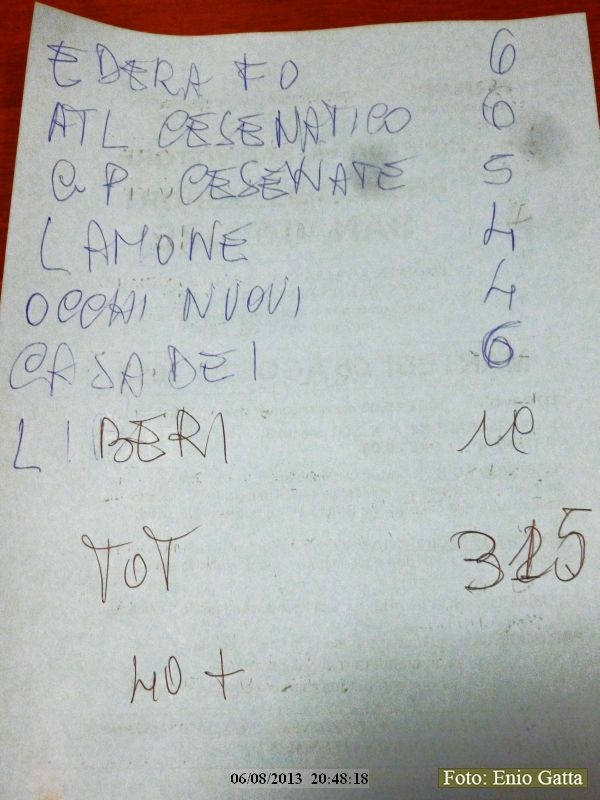 EDERA FO 6
ATL CESENATICO 6
G.P. CESENATE 5
LAMONE 4
OCCHI NUOVI 4
CASADEI 6
LIBERI 10
TOT 315
40 +
06/08/2013 20:48:18
Foto: Enio Gatta